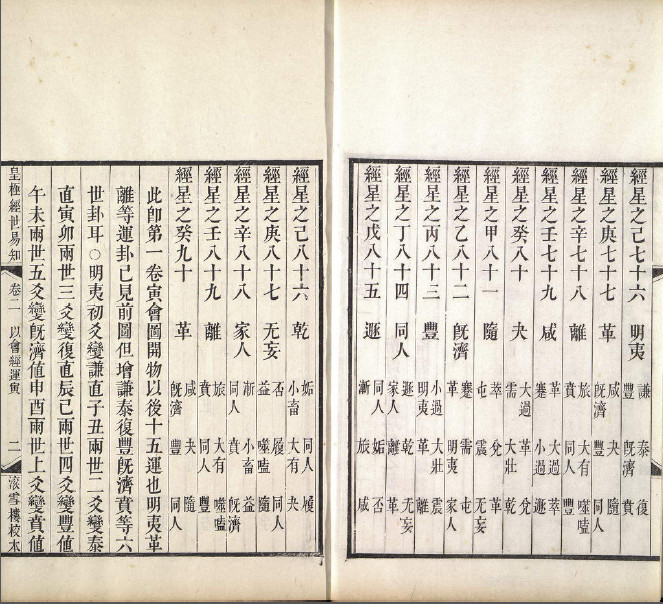 經星之己七十六 明夷 謙 泰 復
豐 旣濟 賁
經星之庚七十七 革 咸 夬 隨
旣濟 豐 同人
經星之辛七十八 離 旅 大有 噬嗑
賁 同人 豐
經星之壬七十九 咸 革 大過 萃
蹇 小過 遯
經星之癸八十 夬 大過 革 兌
需 大壯 乾
經星之甲八十一 隨 萃 兌 革
屯 震 无妄
經星之乙八十二 旣濟 蹇 需 屯
革 明夷 家人
經星之丙八十三 豐 小過 大壯 震
明夷 革 離
經星之丁八十四 同人 遯 乾 无妄
家人 離 革
經星之戊八十五 遯 同人 姤 否
漸 旅 咸
經星之己八十六 乾 姤 同人 履
小畜 大有 夬
經星之庚八十七 无妄 否 履 同人
益 噬嗑 隨
經星之辛八十八 家人 漸 小畜 益
同人 賁 旣濟
經星之壬八十九 離 旅 大有 噬嗑
賁 同人 豐
經星之癸九十 革 咸 夬 隨
旣濟 豐 同人
此卽第一卷寅會圖開物以後十五運也明夷革
離等運卦已見前圖但增謙泰復豐旣濟賁等六
世卦耳○明夷初爻變謙直子丑兩世二爻變泰
直寅卯兩世三爻變復直辰巳兩世四爻變豐値
午未兩世五爻變旣濟値申酉兩世上爻變賁値
皇極經世易知 卷二 以會經運寅 二 滾雪樓校本